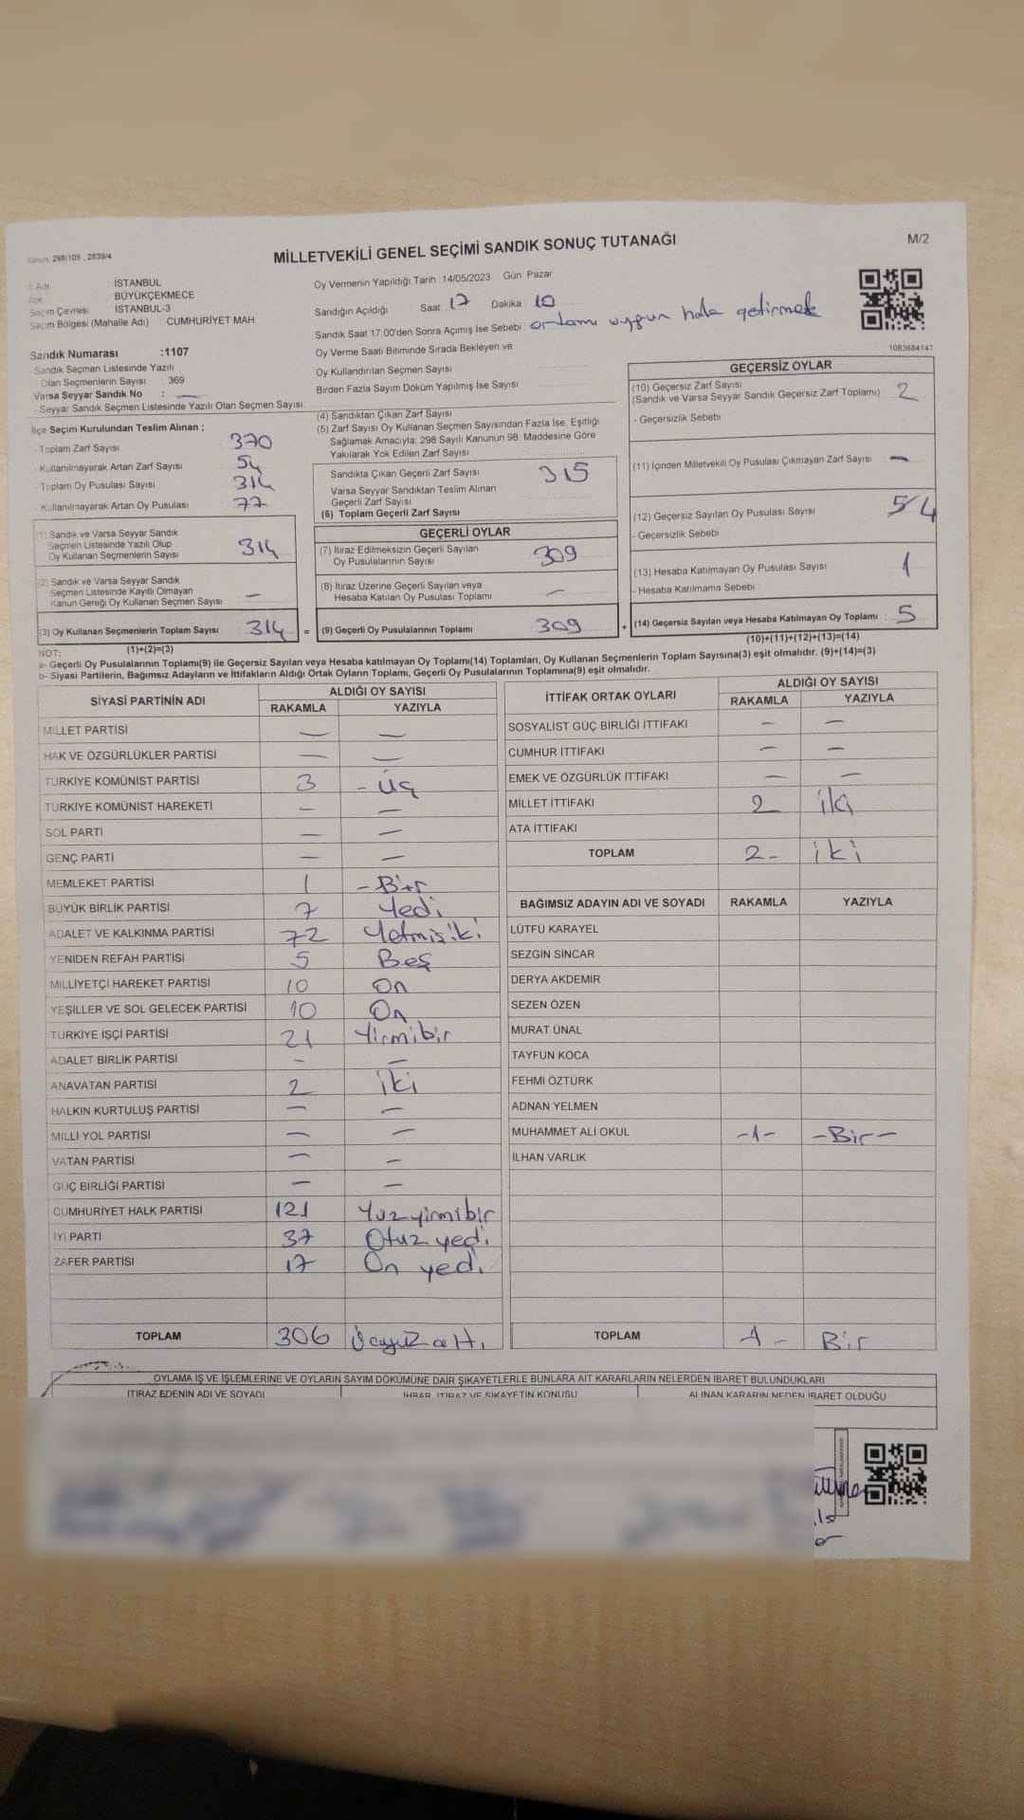 MİLLETVEKİLİ GENEL SEÇİMİ SANDIK SONUÇ TUTANAĞI
M/2
298/109 , 2839/4
İSTANBUL
BÜYÜKÇEKMECE
Seçim Çevresi İSTANBUL-3
Seçim Bölgesi (Mahalle Adı) : CUMHURİYET MAH.
Sandık Numarası :1107
Sandık Seçmen Listesinde Yazılı
Olan Seçmenlerin Sayısı : 369
Varsa Seyyar Sandık No : —
Seyyar Sandık Seçmen Listesinde Yazılı Olan Seçmen Sayısı
Oy Vermenin Yapıldığı Tarih :14/05/2023 Gün Pazar
Sandığın Açıldığı Saat 17 Dakika 10
Sandık Saat 17:00'den Sonra Açılmış İse Sebebi ortamı uygun hale getirmek
Oy Verme Saati Bitiminde Sırada Bekleyen ve
Oy Kullandırılan Seçmen Sayısı
Birden Fazla Sayım Döküm Yapılmış İse Sayısı
1083684147
İlçe Seçim Kurulundan Teslim Alınan ;
Toplam Zarf Sayısı 370
Kullanılmayarak Artan Zarf Sayısı 54
Toplam Oy Pusulası Sayısı 314
Kullanılmayarak Artan Oy Pusulası 77
(1) Sandık ve Varsa Seyyar Sandık
Seçmen Listesinde Yazılı Olup
Oy Kullanan Seçmenlerin Sayısı 314
(2) Sandık ve Varsa Seyyar Sandık
Seçmen Listesinde Kayıtlı Olmayan
Kanun Gereği Oy Kullanan Seçmen Sayısı —
(3) Oy Kullanan Seçmenlerin Toplam Sayısı 314 =
(1)+(2)=(3)
(4) Sandıktan Çıkan Zarf Sayısı
(5) Zarf Sayısı Oy Kullanan Seçmen Sayısından Fazla İse, Eşitliği
Sağlamak Amacıyla; 298 Sayılı Kanunun 98. Maddesine Göre
Yakılarak Yok Edilen Zarf Sayısı
Sandıkta Çıkan Geçerli Zarf Sayısı 315
Varsa Seyyar Sandıktan Teslim Alınan
Geçerli Zarf Sayısı
(6) Toplam Geçerli Zarf Sayısı
GEÇERLİ OYLAR
(7) İtiraz Edilmeksizin Geçerli Sayılan
Oy Pusulalarının Sayısı 309
(8) İtiraz Üzerine Geçerli Sayılan veya
Hesaba Katılan Oy Pusulası Toplamı —
(9) Geçerli Oy Pusulalarının Toplamı 309 +
GEÇERSİZ OYLAR
(10) Geçersiz Zarf Sayısı
(Sandık ve Varsa Seyyar Sandık Geçersiz Zarf Toplamı) 2
- Geçersizlik Sebebi
(11) İçinden Milletvekili Oy Pusulası Çıkmayan Zarf Sayısı —
(12) Geçersiz Sayılan Oy Pusulası Sayısı 5/4
- Geçersizlik Sebebi
(13) Hesaba Katılmayan Oy Pusulası Sayısı 1
- Hesaba Katılmama Sebebi
(14) Geçersiz Sayılan veya Hesaba Katılmayan Oy Toplamı 5
(10)+(11)+(12)+(13)=(14)
NOT:
a- Geçerli Oy Pusulalarının Toplamı(9) ile Geçersiz Sayılan veya Hesaba katılmayan Oy Toplamı(14) Toplamları, Oy Kullanan Seçmenlerin Toplam Sayısına(3) eşit olmalıdır. (9)+(14)=(3)
b- Siyasi Partilerin, Bağımsız Adayların ve İttifakların Aldığı Ortak Oyların Toplamı, Geçerli Oy Pusulalarının Toplamına(9) eşit olmalıdır.
SİYASİ PARTİNİN ADI ALDIĞI OY SAYISI
RAKAMLA YAZIYLA
MİLLET PARTİSİ — —
HAK VE ÖZGÜRLÜKLER PARTİSİ — —
TÜRKİYE KOMÜNİST PARTİSİ 3 - Üç
TÜRKİYE KOMÜNİST HAREKETİ — —
SOL PARTİ — —
GENÇ PARTİ — —
MEMLEKET PARTİSİ 1 - Bir
BÜYÜK BİRLİK PARTİSİ 7 Yedi
ADALET VE KALKINMA PARTİSİ 72 Yetmişiki
YENİDEN REFAH PARTİSİ 5 Beş
MİLLİYETÇİ HAREKET PARTİSİ 10 On
YEŞİLLER VE SOL GELECEK PARTİSİ 10 On
TÜRKİYE İŞÇİ PARTİSİ 21 Yirmibir
ADALET BİRLİK PARTİSİ — —
ANAVATAN PARTİSİ 2 iki
HALKIN KURTULUŞ PARTİSİ — —
MİLLİ YOL PARTİSİ — —
VATAN PARTİSİ — —
GÜÇ BİRLİĞİ PARTİSİ — —
CUMHURİYET HALK PARTİSİ 121 Yüzyirmibir
İYİ PARTİ 37 Otuz yedi
ZAFER PARTİSİ 17 On yedi
TOPLAM 306 Üçyüz altı
İTTİFAK ORTAK OYLARI ALDIĞI OY SAYISI
RAKAMLA YAZIYLA
SOSYALİST GÜÇ BİRLİĞİ İTTİFAKI — —
CUMHUR İTTİFAKI — —
EMEK VE ÖZGÜRLÜK İTTİFAKI — —
MİLLET İTTİFAKI 2 iki
ATA İTTİFAKI
TOPLAM 2- iki
BAĞIMSIZ ADAYIN ADI VE SOYADI RAKAMLA YAZIYLA
LÜTFÜ KARAYEL
SEZGİN SİNCAR
DERYA AKDEMİR
SEZEN ÖZEN
MURAT ÜNAL
TAYFUN KOCA
FEHMİ ÖZTÜRK
ADNAN YELMEN
MUHAMMET ALİ OKUL -1- -Bir-
İLHAN VARLIK
TOPLAM 1- Bir
OYLAMA İŞ VE İŞLEMLERİNE VE OYLARIN SAYIM DÖKÜMÜNE DAİR ŞİKAYETLERLE BUNLARA AİT KARARLARIN NELERDEN İBARET BULUNDUKLARI
İTİRAZ EDENİN ADI VE SOYADI İHBAR, İTİRAZ VE ŞİKAYETİN KONUSU ALINAN KARARIN NEDEN İBARET OLDUĞU